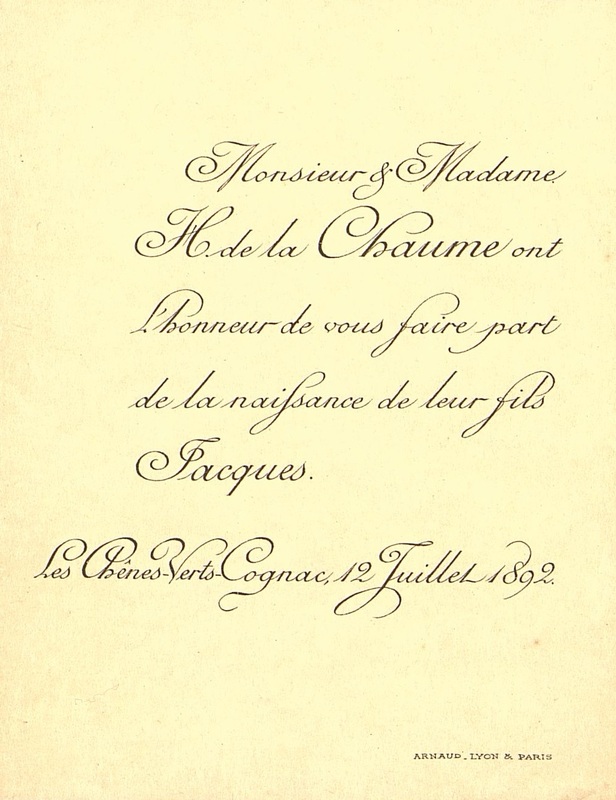 Monsieur & Madame
H. de la Chaume ont
l'honneur de vous faire part
de la naiſsance de leur fils
Jacques.
Les Chênes-Verts-Cognac, 12 Juillet 1892.
ARNAUD. LYON & PARIS